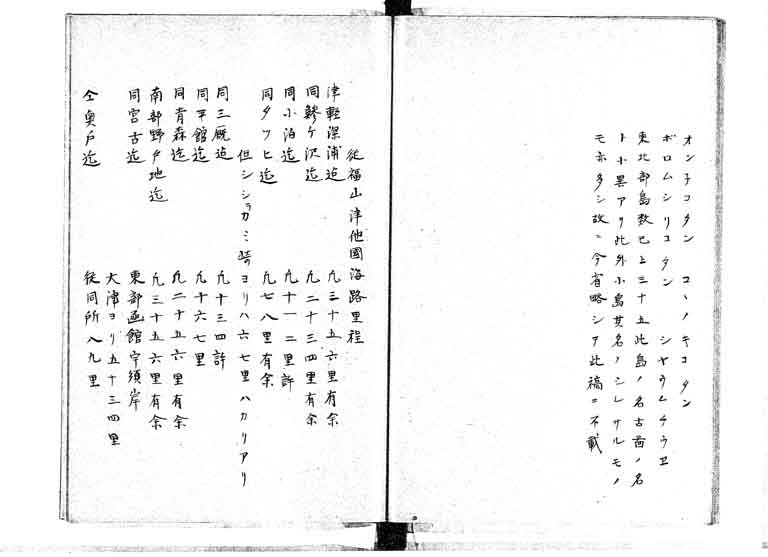 オン子コタン　コヽノキコタン
ボロムシリコタン　シヤウムチウヱ
東北部島数已上三十五此島ノ名古苗ノ名
ト小異アリ此外小島其名ノシレサルモノ
モホ多シ故ニ今省略シテ此稿ニ不載
従福山津他國海路里程
津軽深浦迄　凡三十五六里有余
同鰺ケ沢迄　凡二十三四里有余
同小泊迄　凡十一二里許
同タツヒ迄　凡七八里有余
但シシラカミ崎ヨリハ六七里ハカリアリ
同三厩迄　凡十三四許
同平館迄　凡十六七里
同青森迄　凡二十五六里有余
南部野戸地迄　凡三十五六里有余
同宮古迄　東部函館宇須岸
大津ヨリ五十三四里
仝奥戸迄　従同所八九里